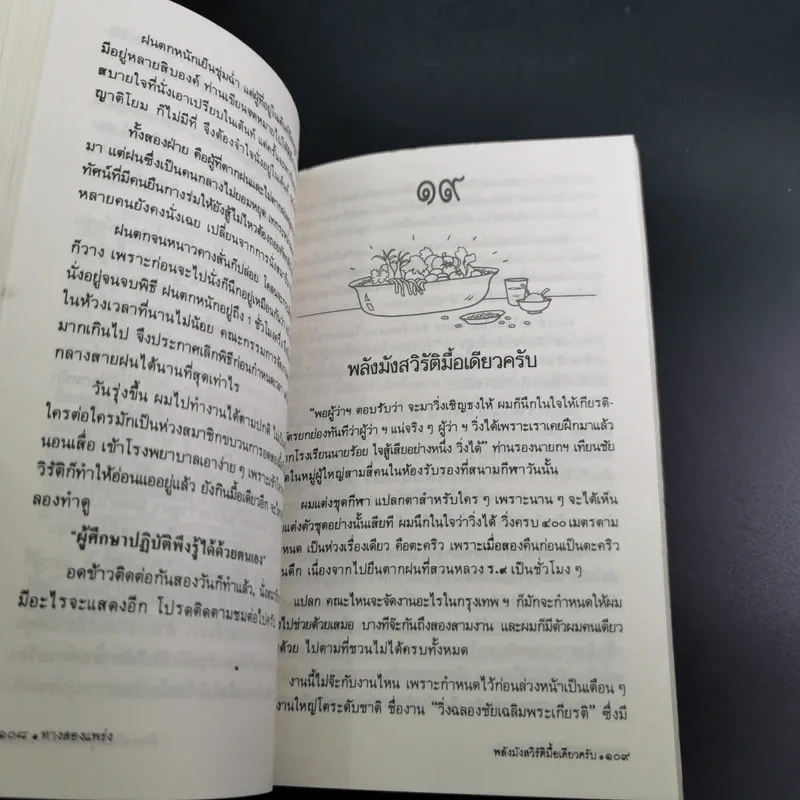 ฝนตกหนักเย็นชุ่มฉ่ำ แต่ผู้ที่
มีอยู่หลายสิบองค์ ท่านเขียนจดหมาย
สบายใจที่นั่งเอาเปรียบในเต็นท์
ญาติโยม ก็ไม่มีที่ จึงต้องจำใจนั่งอยู่ในเต็นท์
ทั้งสองฝ่าย คือผู้ที่ตากฝนและไม่ตากฝน
มา แต่ฝนซึ่งเป็นคนกลางไม่ยอมหยุด
ทัศน์ที่มีคนยืนกางร่มให้ยังสู้ไม่ไหวต้องถอย
หลายคนยังคงนั่งเฉย เปลี่ยนจากการนั่ง
ฝนตกจนหนาวคางสั่นก็ปล่อย
ก็วาง เพราะก่อนจะไปนั่งก็นึกอยู่เหมือนกันว่า
นั่งอยู่จนจบพิธี ฝนตกหนักอยู่ถึง ๑ ชั่วโมงครึ่ง
ในห้วงเวลาที่นานไม่น้อย คณะกรรมการ
มากเกินไป จึงประกาศเลิกพิธีก่อนกำหนดเวลา
กลางสายฝนได้นานที่สุดเท่าไร
วันรุ่งขึ้น ผมไปทำงานได้ตามปกติ
ใครต่อใครมักเป็นห่วงสมาชิกขบวนการ
นอนเสื่อ เข้าโรงพยาบาลเอาง่าย ๆ เพราะ
วิรัติก็ทำให้อ่อนแออยู่แล้ว ยังกินมื้อเดียวอีก
ลองทำดู
"ผู้ศึกษาปฏิบัติพึงรู้ได้ด้วยตนเอง"
อดข้าวติดต่อกันสองวันก็ทำแล้ว,
มีอะไรจะแสดงอีก โปรดติดตามชมต่อไปครับ
๑๐๘ • ทางสองแพร่ง
๑๙
พลังมังสวิรัติมื้อเดียวครับ
"พอผู้ว่าฯ ตอบรับว่า จะมาวิ่งเชิญธงให้ ผมก็นึกในใจให้เกียรติ-
ยกย่องทันทีว่าผู้ว่า ฯ แน่จริง ๆ ผู้ว่า ฯ วิ่งได้เพราะเราเคยฝึกมาแล้ว
โรงเรียนนายร้อย ใจสู้เสียอย่างหนึ่ง วิ่งได้" ท่านรองนายกฯ เทียนชัย
ในหมู่ผู้ใหญ่สามสี่คนในห้องรับรองที่สนามกีฬาวันนั้น
ผมแต่งชุดกีฬา แปลกตาสำหรับใคร ๆ เพราะนาน ๆ จะได้เห็น
แต่งตัวชุดอย่างนั้นเสียที ผมนึกในใจว่าวิ่งได้ วิ่งครบ ๔๐๐ เมตรตาม
เป็นห่วงเรื่องเดียว คือตะคริว เพราะเมื่อสองคืนก่อนเป็นตะคริว
เนื่องจากไปยืนตากฝนที่สวนหลวง ร.๙ เป็นชั่วโมง ๆ
แปลก คณะไหนจะจัดงานอะไรในกรุงเทพ ฯ ก็มักจะกำหนดให้ผม
ไปช่วยด้วยเสมอ บางทีจ๊ะกันถึงสองสามงาน และผมก็มีตัวผมคนเดียว
ด้วย ไปตามที่ชวนไม่ได้ครบทั้งหมด
งานนี้ไม่จ๊ะกับงานไหน เพราะกำหนดไว้ก่อนล่วงหน้าเป็นเดือน ๆ
งานใหญ่โตระดับชาติ ชื่องาน "วิ่งฉลองชัยเฉลิมพระเกียรติ" ซึ่งมี
พลังมังสวิรัติมื้อเดียวครับ • ๑๐๙